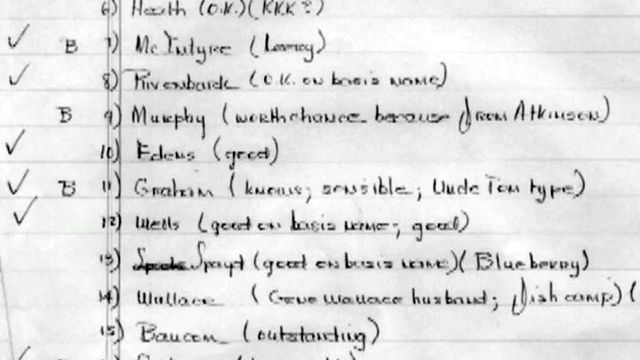 6) Heath (O.K.) (KKK?)
✓ B 7) McIntyre (Leroy)
✓ 8) Rivenbark (O.K. on basis name)
B 9) Murphy (worth chance because from Atkinson)
✓ 10) Edens (good)
✓ B 11) Graham (knows; sensible; Uncle Tom type)
✓ 12) Wells (good on basis name; good)
13) Spayd (good on basis name) (Blueberry)
14) Wallace (Gene Wallace husband; fish camp) (
15) Baucom (outstanding)